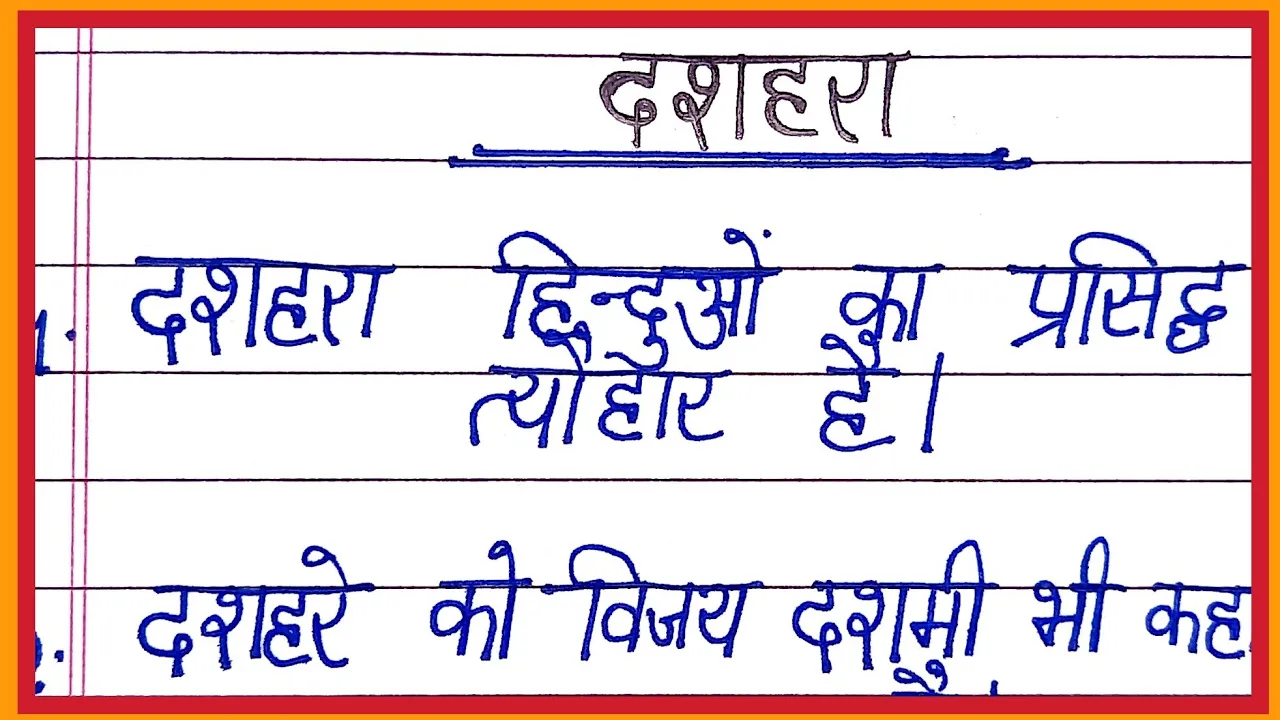 दशहरा
1. दशहरा हिन्दुओं का प्रसिद्ध
त्योहार है।
दशहरे को विजय दशमी भी कह